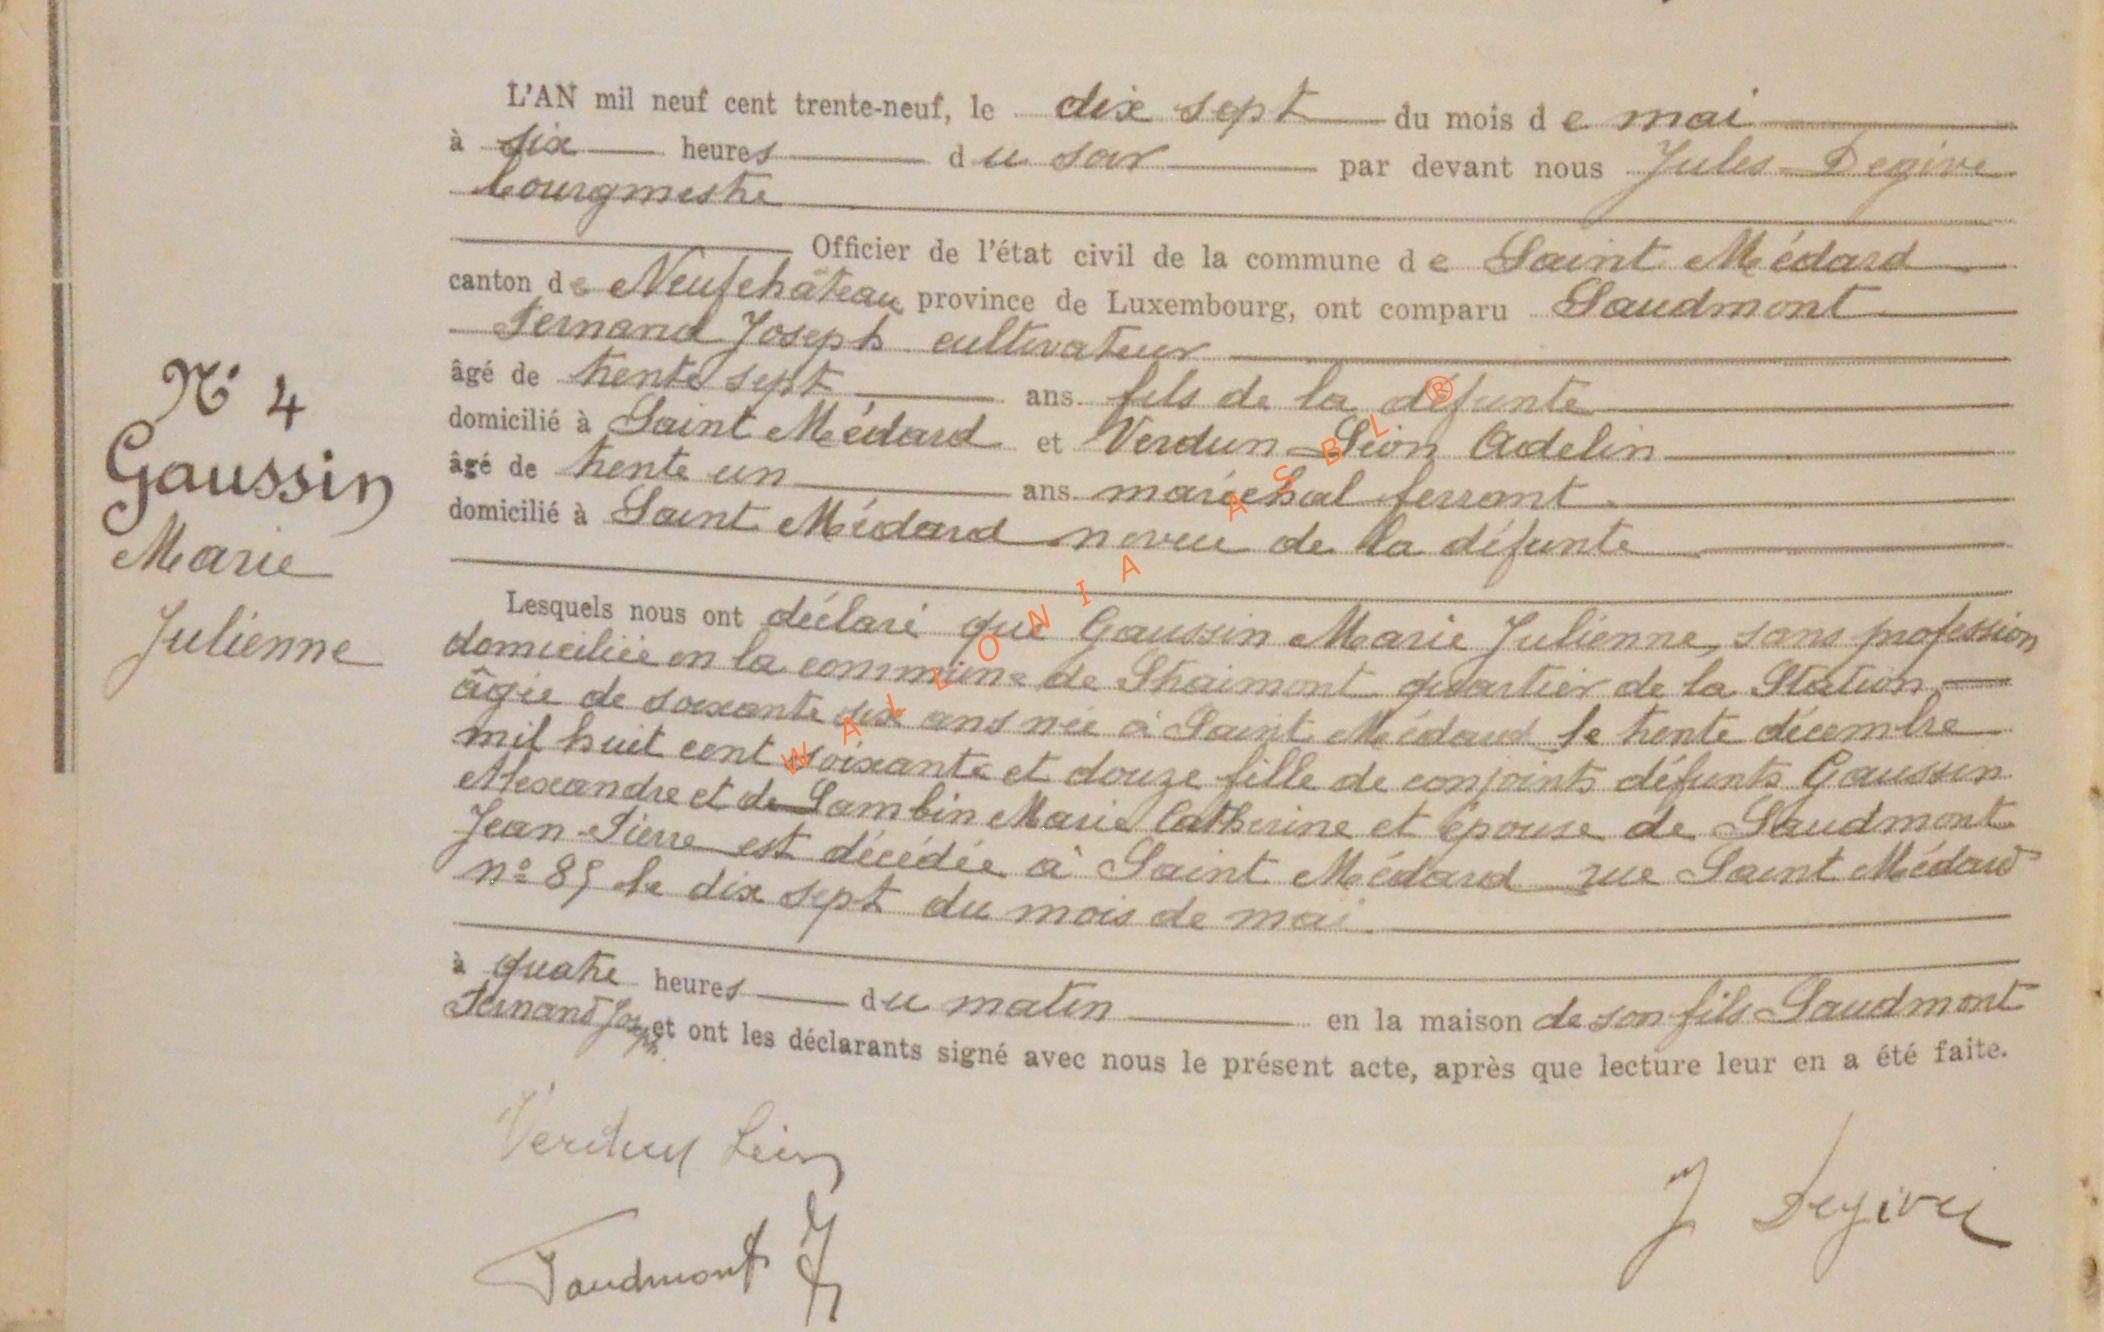 L'AN mil neuf cent trente-neuf, le dix sept du mois de mai
à six heures du soir par devant nous Jules Degive
bourgmestre
Officier de l'état civil de la commune de Saint Médard
canton de Neufchâteau province de Luxembourg, ont comparu Saudmont
Fernand Joseph cultivateur
âgé de trente sept ans fils de la défunte
domicilié à Saint Médard et Verdun Léon Adelin
âgé de trente un ans maréchal ferrant
domicilié à Saint Médard neveu de la défunte
N° 4
Gaussin
Marie
Julienne
Lesquels nous ont déclaré que Gaussin Marie Julienne, sans profession
domiciliée en la commune de Straimont quartier de la Station
âgée de soixante six ans née à Saint Médard le trente décembre
mil huit cent soixante et douze fille de conjoints défunts Gaussin
Alexandre et de Lambin Marie Catherine et épouse de Saudmont
Jean Pierre est décédée à Saint Médard rue Saint Médard
n° 85 le dix sept du mois de mai
à quatre heures du matin en la maison de son fils Saudmont
Fernand Joseph et ont les déclarants signé avec nous le présent acte, après que lecture leur en a été faite.
Verdun Léon
J Degive
Saudmont F J
WALLONIA ASBL ®